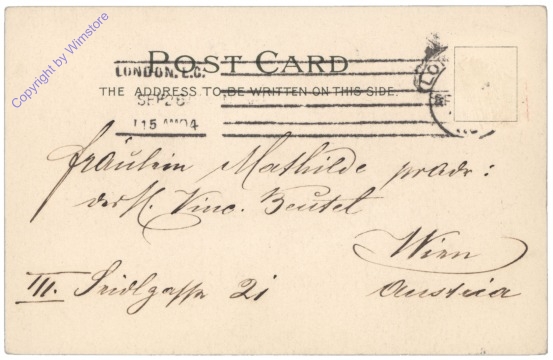 Copyright by Wimstore
POST CARD
LONDON. E.C.
THE ADDRESS TO BE WRITTEN ON THIS SIDE.
SEP 26
1 15 AM 04
Fräulein Mathilde
Vinc. Beutel
Wien
III. Seidlgasse 21
Austria